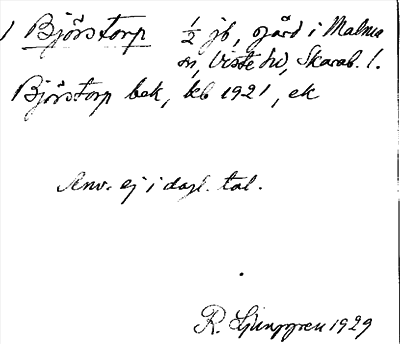 1 Björstorp 1/2 jb, gård i Malma
sn, Viste hd, Skarab. l.
Björstorp bek, kb 1921, ek
Anv. ej i dagl. tal.
R. Ljunggren 1929